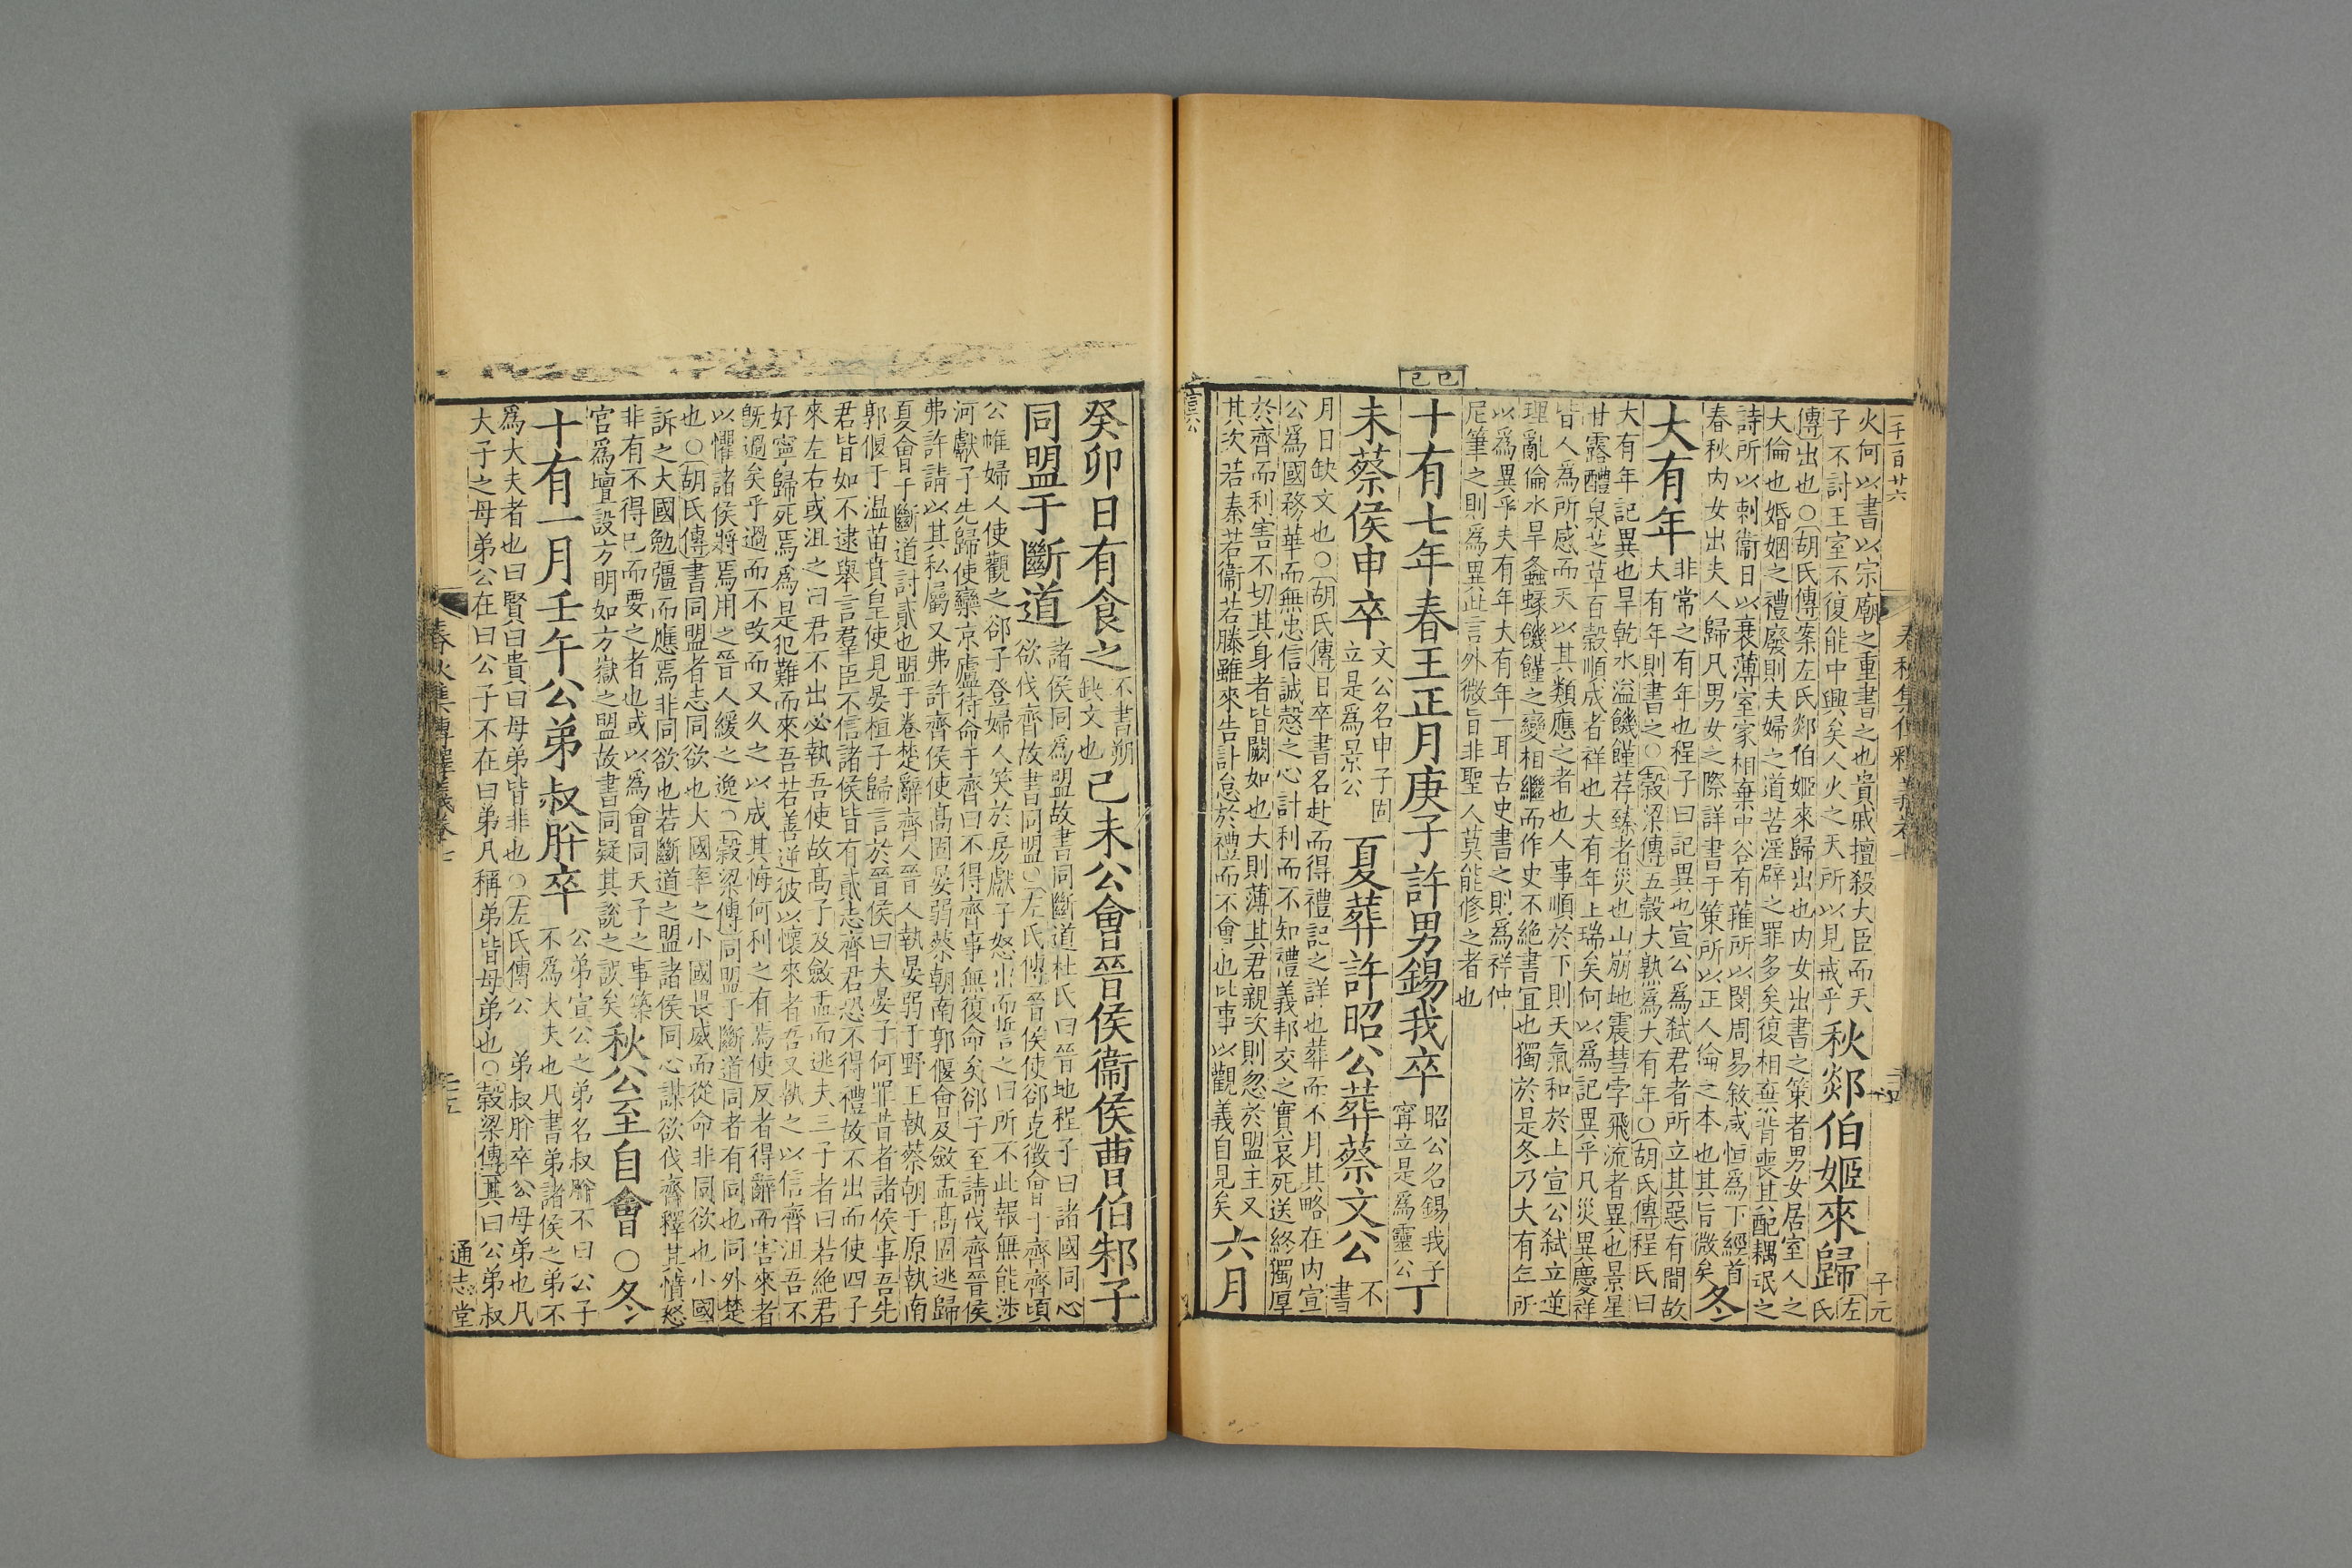 二千一百廿六
火何以書以宗廟之重書之也貴戚擅殺大臣而天
子不討王室不復能中興矣人火之天所以見戒乎
秋郯伯姬來歸
左
氏
傳出也○胡氏傳案左氏郯伯姬來歸出也內女出書之策者男女居室人之
大倫也婚姻之禮廢則夫婦之道苦淫辟之罪多矣復相棄背喪其配耦氓之
詩所以刺衞日以衰薄室家相棄中谷有蓷所以閔周易敘咸恒爲下經首
春秋內女出夫人歸凡男女之際詳書于策所以正人倫之本也其旨微矣
冬
大有年
非常之有年也程子曰記異也宣公爲弑君者所立其惡有間故
大有年則書之○穀梁傳五穀大熟爲大有年○胡氏傳程氏曰
大有年記異也旱乾水溢饑饉荐臻者災也山崩地震彗孛飛流者異也景星
甘露醴泉芝草百穀順成者祥也大有年上瑞矣何以爲記異乎凡災異慶祥
皆人爲所感而天以其類應之者也人事順於下則天氣和於上宣公弑立逆
理亂倫水旱螽蝝饑饉之變相繼而作史不絕書宜也獨於是冬乃大有年所
以爲異乎夫有年大有年一耳古史書之則爲祥仲
尼筆之則爲異此言外微旨非聖人莫能修之者也
己巳
十有七年春王正月庚子許男錫我卒
昭公名錫我子
甯立是爲靈公
丁
未蔡侯申卒
文公名申子固
立是爲景公
夏葬許昭公葬蔡文公
不
書
月日缺文也○胡氏傳日卒書名赴而得禮記之詳也葬而不月其略在內宣
公爲國務華而無忠信誠愨之心計利而不知禮義邦交之實哀死送終獨厚
於齊而利害不切其身者皆闕如也大則薄其君親次則忽於盟主又
其次若秦若衞若滕雖來告訃怠於禮而不會也此事以觀義自見矣
六月
癸卯日有食之
不書朔
缺文也
己未公會晉侯衞侯曹伯邾子
同盟于斷道
諸侯同爲盟故書同斷道杜氏曰晉地程子曰諸國同心
欲伐齊故書同盟○左氏傳晉侯使郤克徵會于齊齊頃
公帷婦人使觀之郤子登婦人笑於房獻子怒出而誓之曰所不此報無能涉
河獻子先歸使欒京廬待命于齊曰不得齊事無復命矣郤子至請伐齊晉侯
弗許請以其私屬又弗許齊侯使高固晏弱蔡朝南郭偃會及斂盂高固逃歸
夏會于斷道討貳也盟于卷楚辭齊人晉人執晏弱于野王執蔡朝于原執南
郭偃于溫苗賁皇使見晏桓子歸言於晉侯曰夫晏子何罪昔者諸侯事吾先
君皆如不逮舉言羣臣不信諸侯皆有貳志齊君恐不得禮故不出而使四子
來左右或沮之曰君不出必執吾使故高子及斂盂而逃夫三子者曰若絕君
好寧歸死焉爲是犯難而來吾若善逆彼以懷來者吾又執之以信齊沮吾不
旣過矣乎過而不改而又久之以成其悔何利之有焉使反者得辭而害來者
以懼諸侯將焉用之晉人緩之逸○穀梁傳同盟于斷道同者有同也同外楚
也○胡氏傳書同盟者志同欲也大國率之小國畏威而從命非同欲也小國
訴之大國勉彊而應焉非同欲也若斷道之盟諸侯同心謀欲伐齊釋其憤怒
非有不得已而要之者也或以爲會同天子之事築
宮爲壇設方明如方嶽之盟故書同疑其說之誤矣
秋公至自會○冬
十有一月壬午公弟叔肸卒
公弟宣公之弟名叔肸不曰公子
不爲大夫也凡書弟諸侯之弟不
爲大夫者也曰賢曰貴曰母弟皆非也○左氏傳公弟叔肸卒公母弟也凡
大子之母弟公在曰公子不在曰弟凡稱弟皆母弟也○穀梁傳其曰公弟叔
春秋集傳釋義卷七
二十五
通志堂